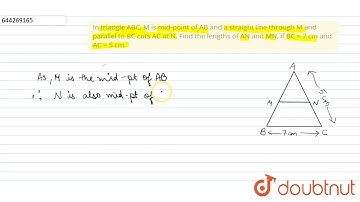 644269165
In triangle ABC, M is mid-point of AB and a straight line through M and
parallel to BC cuts AC at N. Find the lengths of AN and MN, if BC = 7 cm and
AC = 5 cm.
As, M is the mid-pt of AB
∴ N is also mid-pt of
A
M
N
5 cm
B
7cm
C
doubtnut